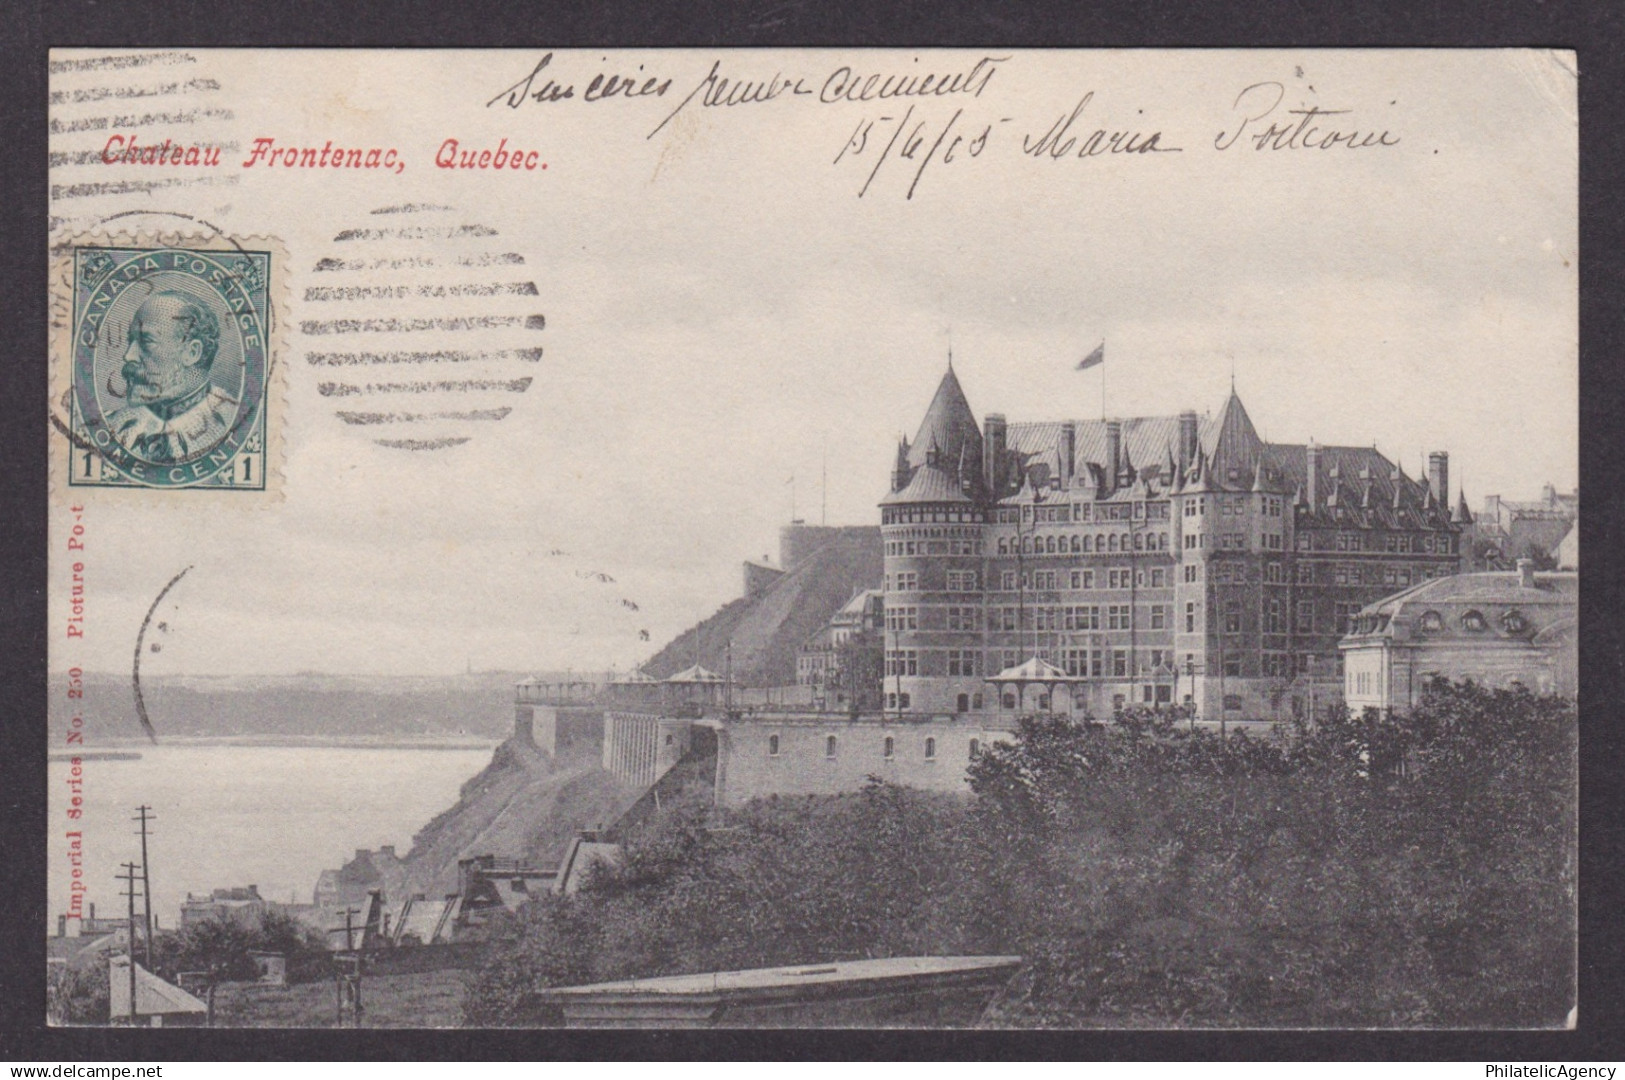 Sincères remerciements
15/6/05 Maria
Chateau Frontenac, Quebec.
CANADA POSTAGE
1 ONE CENT 1
Imperial Series No. 250 Picture Post
© PhilatelicAgency / delcampe.net
PhilatelicAgency